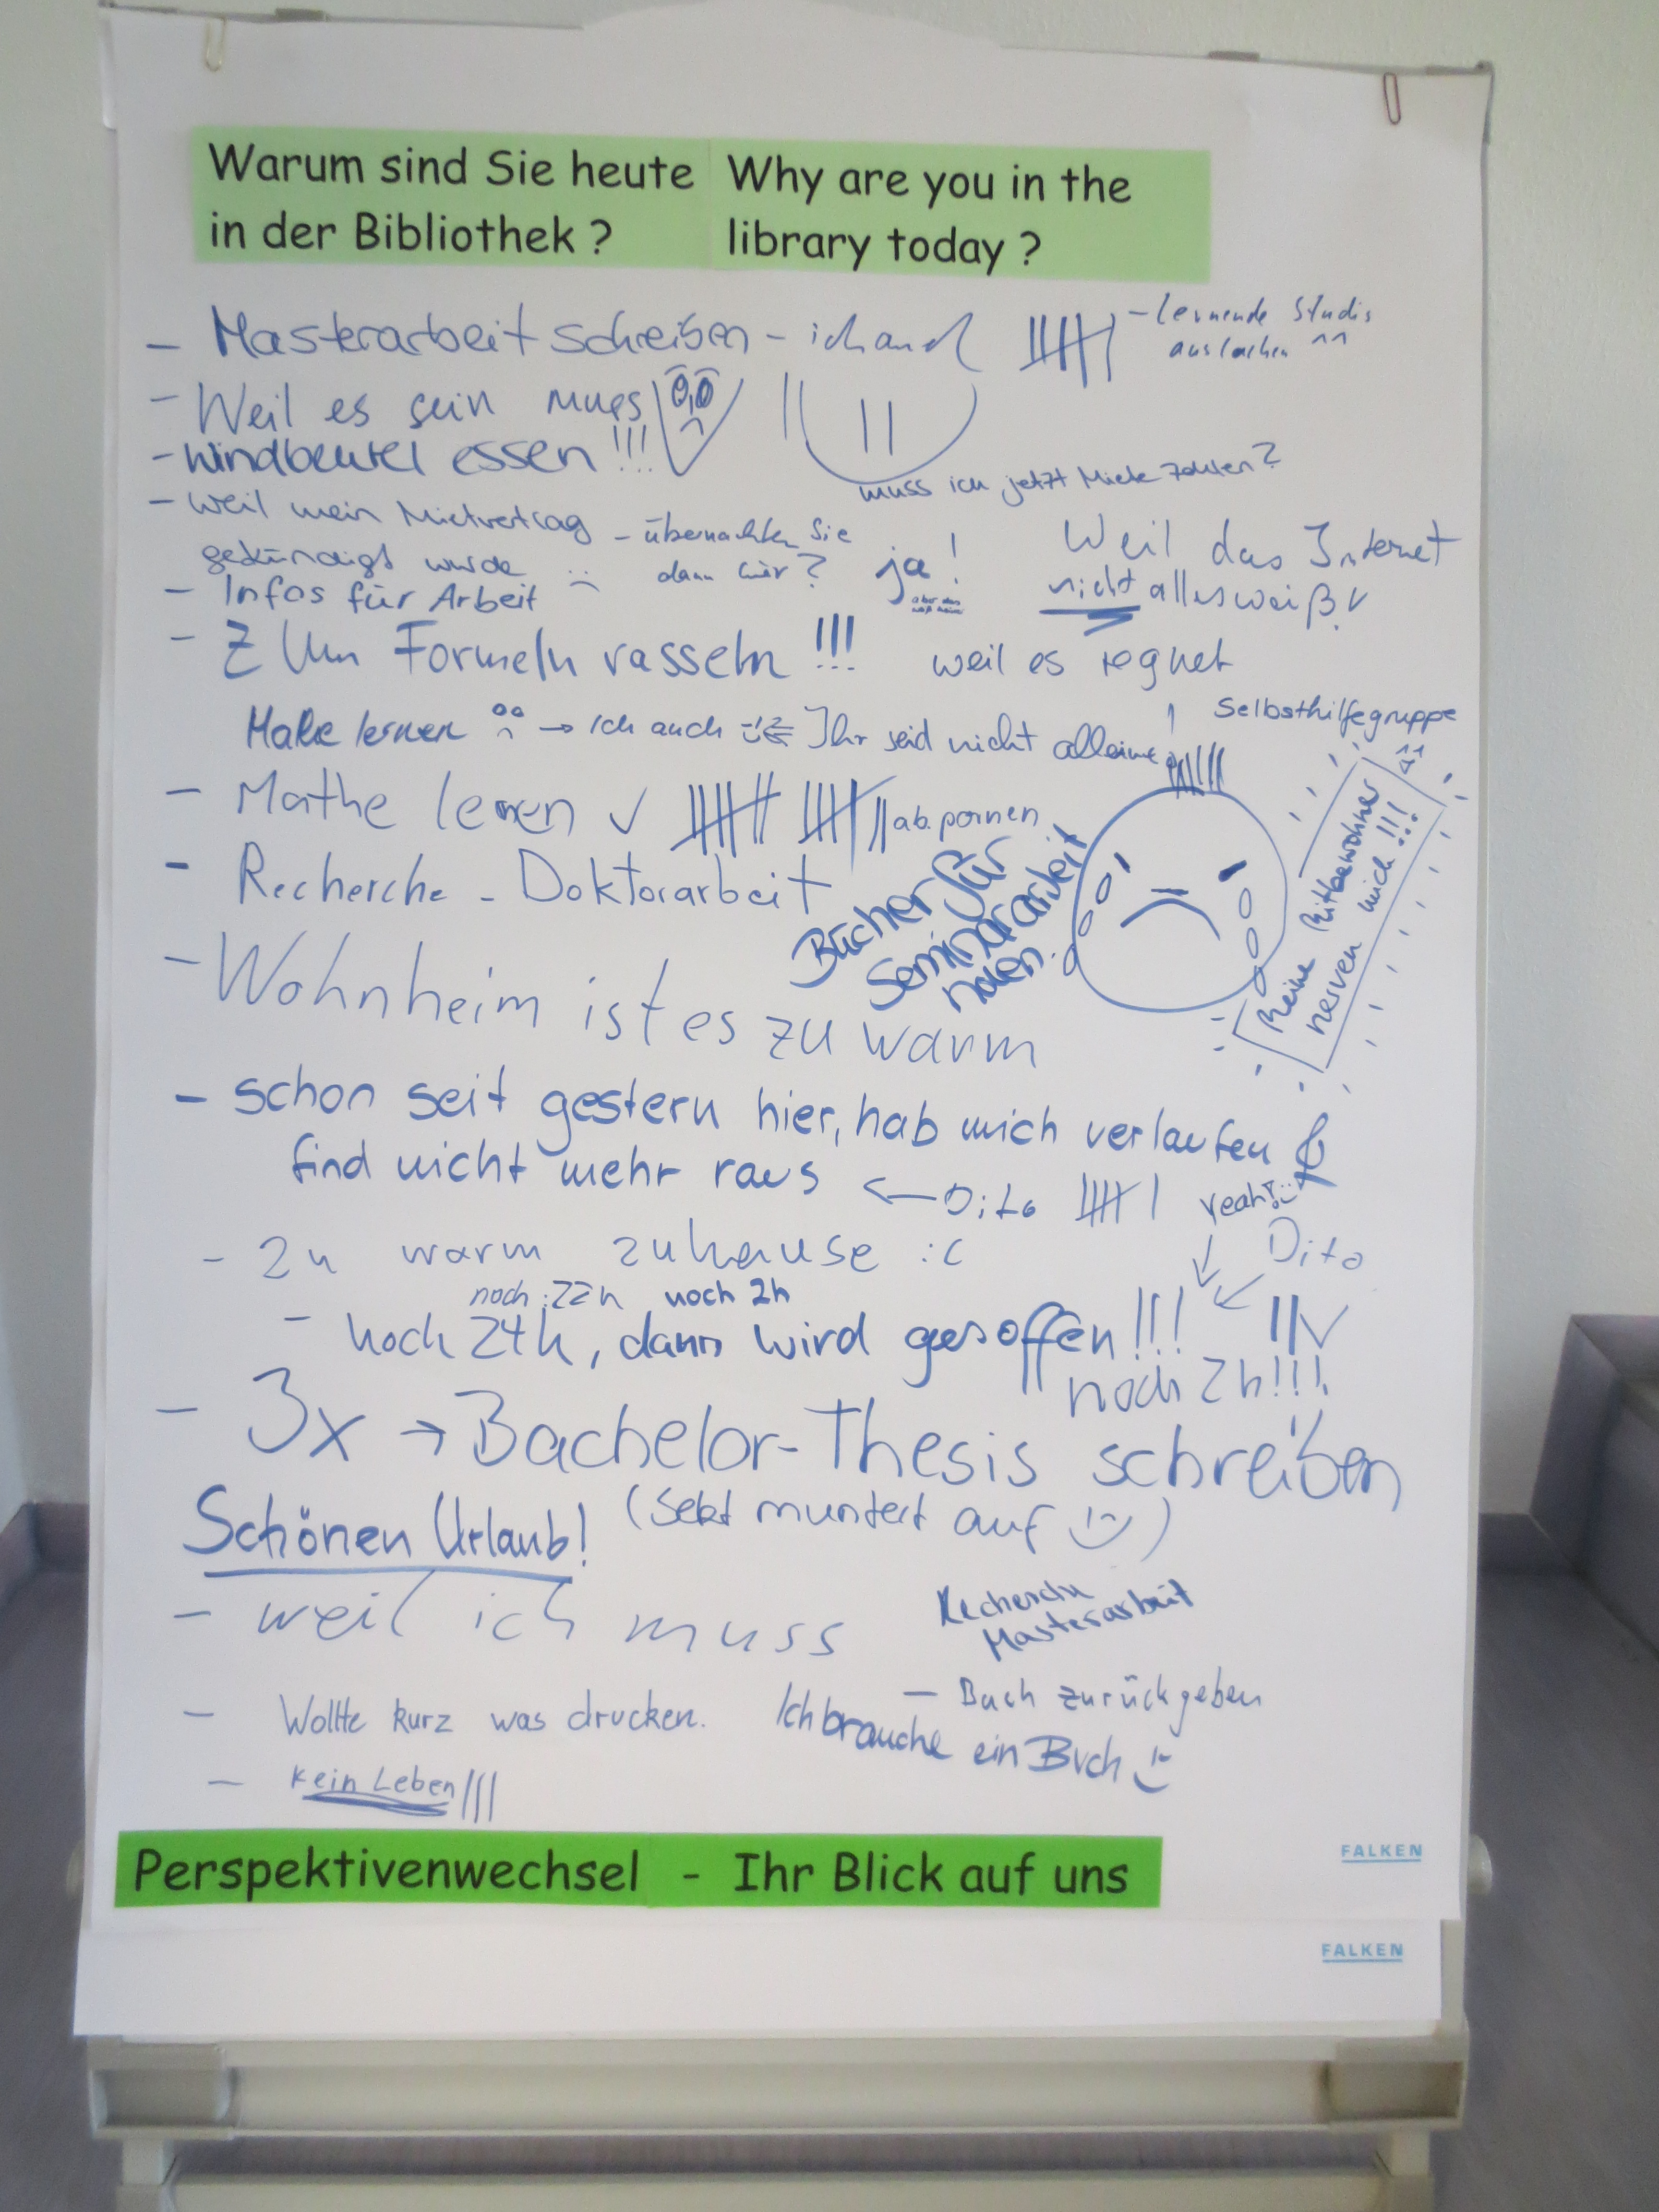 Warum sind Sie heute
in der Bibliothek ?
Why are you in the
library today ?
- Masterarbeit schreiben - ich auch
- lernende Studis
auslachen ^^
- Weil es sein muss
- Windbeutel essen !!!
muss ich jetzt Miete zahlen?
- weil mein Mietvertrag
gekündigt wurde :(
- übernachten Sie
dann hier?
ja!
Weil das Internet
nicht alles weiß!
- Infos für Arbeit
- Zum Formeln rasseln !!!
weil es regnet
Selbsthilfegruppe
^^
Mathe lernen → Ich auch Ihr seid nicht alleine
- Mathe lernen ✓
- Recherche - Doktorarbeit
Bücher für
Seminararbeit
holen.
Meine Mitbewohner
nerven mich !!!
- Wohnheim ist es zu warm
- schon seit gestern hier, hab mich verlaufen
find nicht mehr raus
← Dito
yeah!
Dito
- zu warm zuhause :(
noch 22h noch 2h
- noch 24h, dann wird gesoffen!!!
noch 2h!!!
- 3x → Bachelor-Thesis schreiben
Schönen Urlaub!
(Sekt muntert auf :-))
- weil ich muss
Recherche
Masterarbeit
- Buch zurückgeben
- Wollte kurz was drucken.
Ich brauche ein Buch :-)
- Kein Leben
Perspektivenwechsel - Ihr Blick auf uns
FALKEN
FALKEN